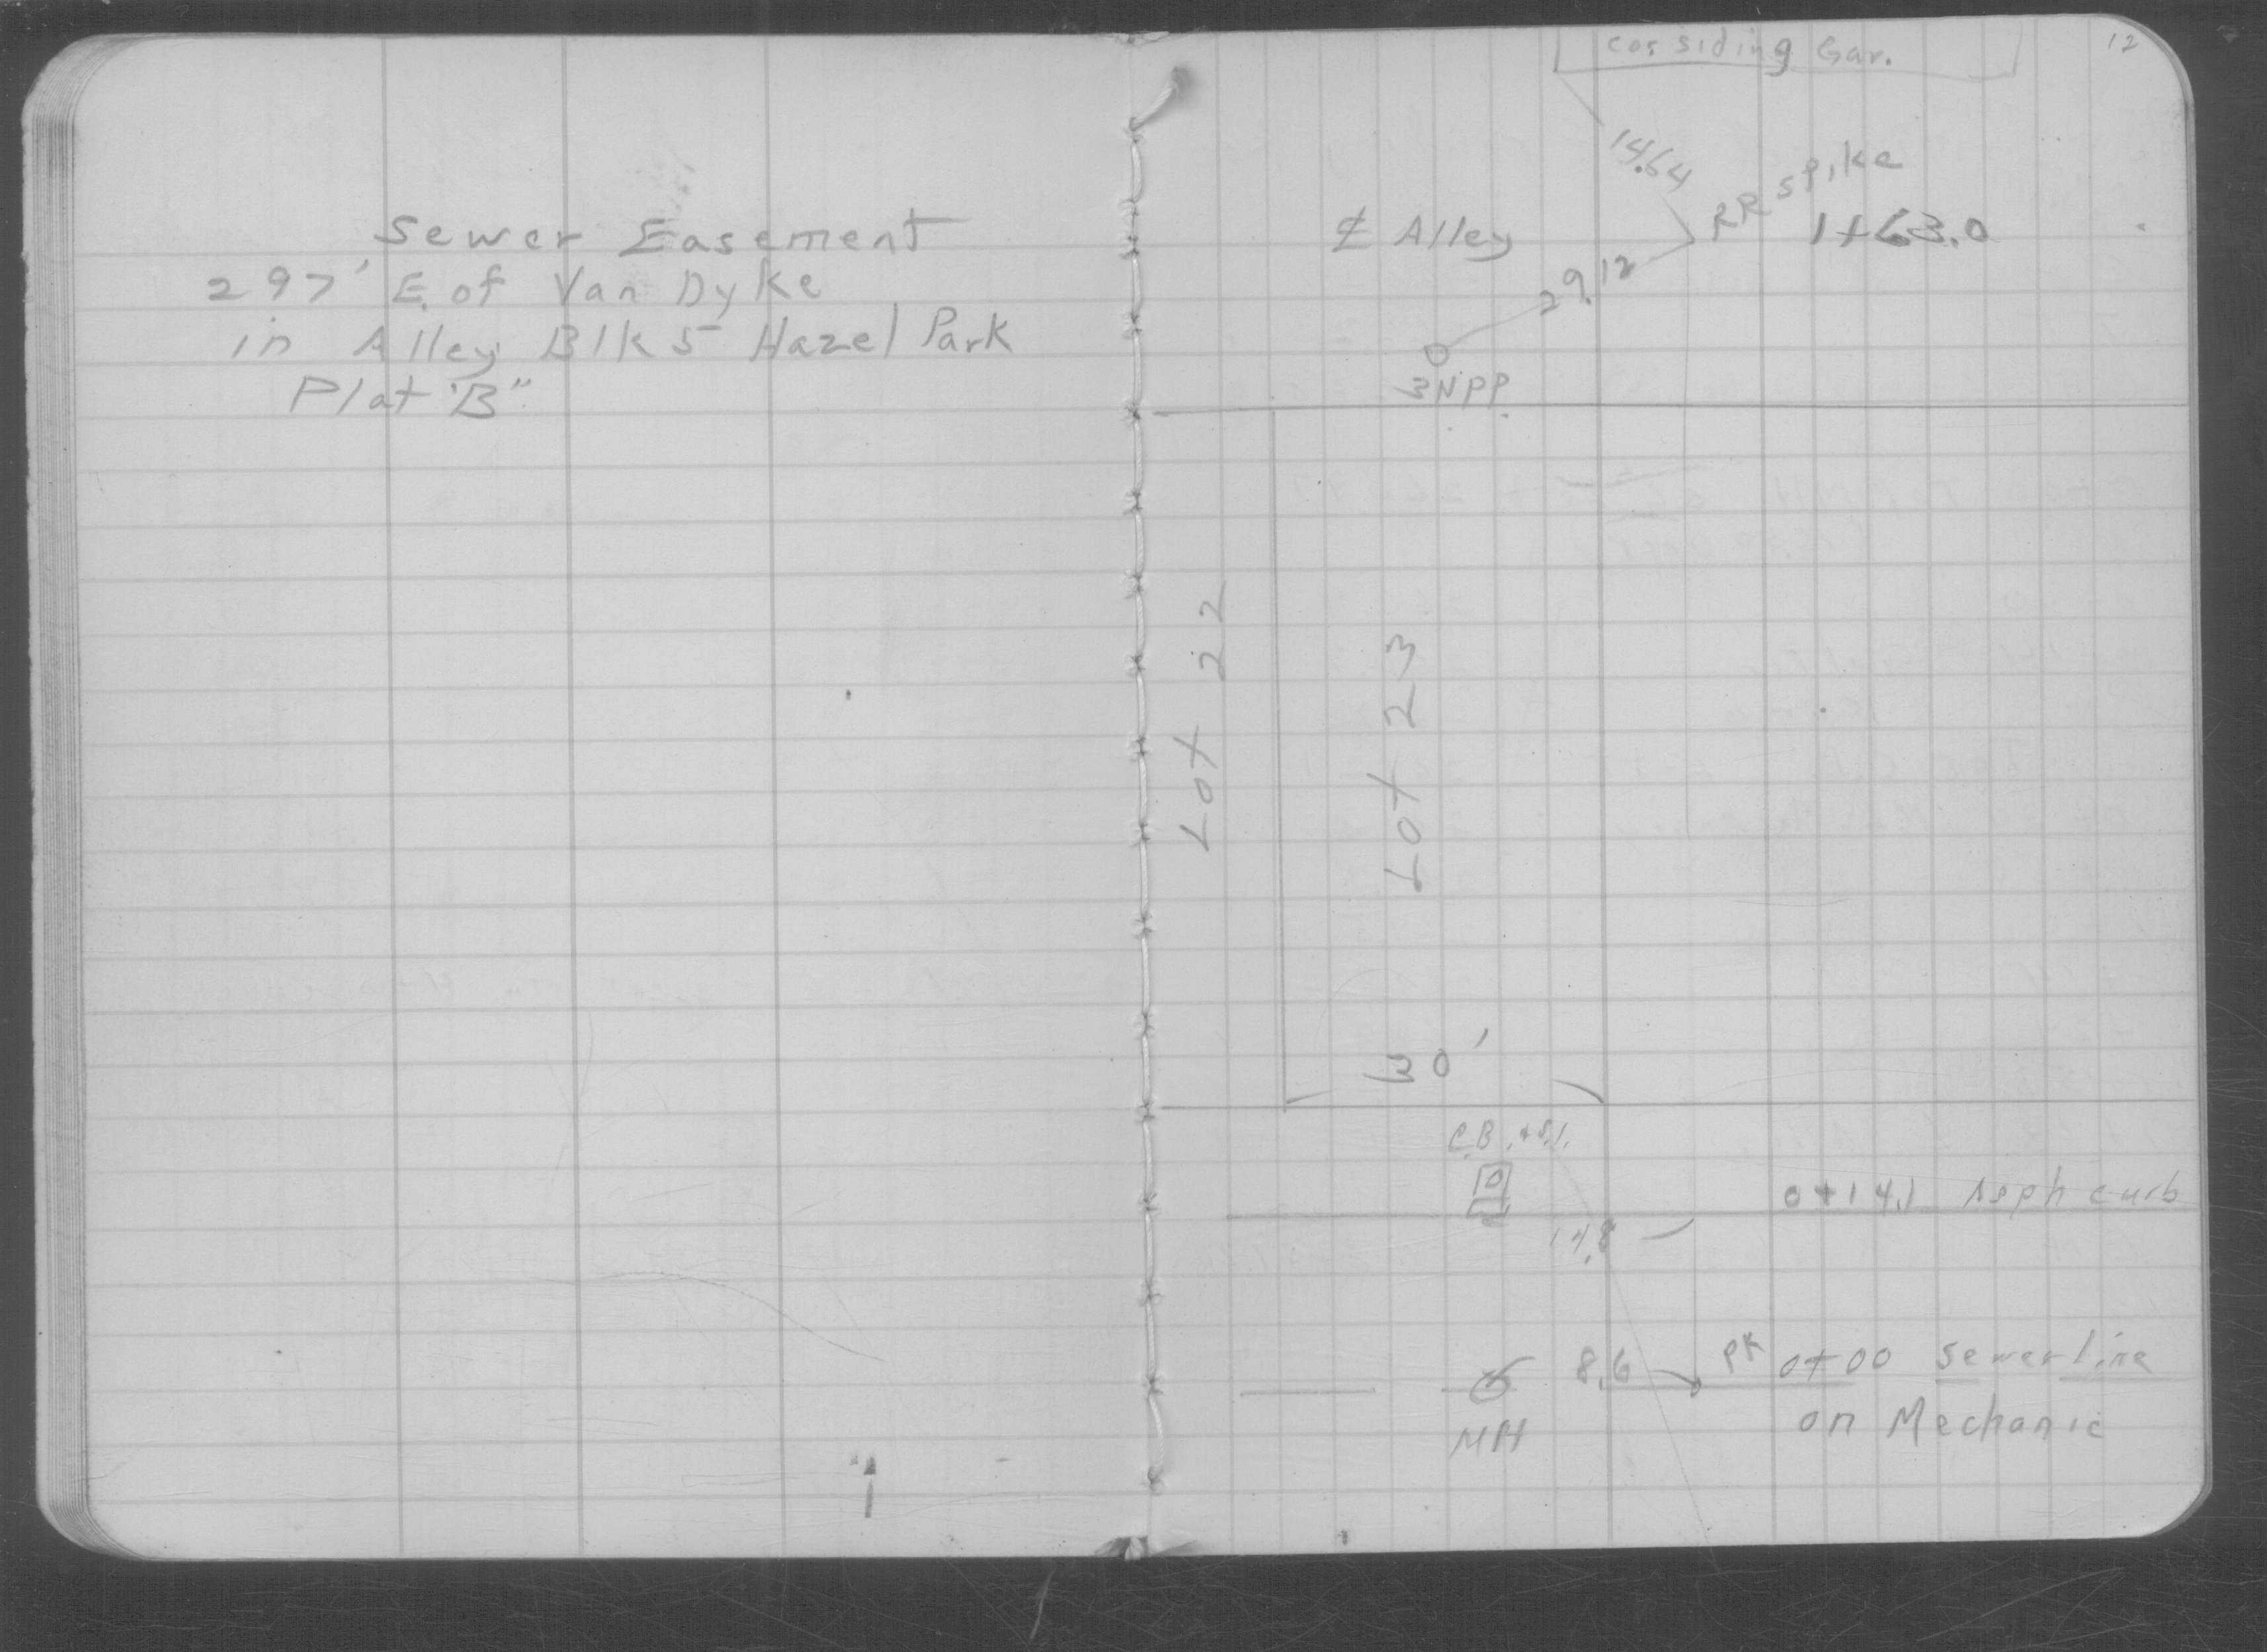 Sewer Easement
297' E. of Van Dyke
in Alley Blk 5 Hazel Park
Plat "B"
12
cor. siding Gar.
14.64
RR spike
℄ Alley
1+63.0
29.12
NPP
Lot 22
Lot 23
30'
C.B.
0+14.1 Asph curb
14.8
8.6
PK 0+00 sewer line
MH
on Mechanic